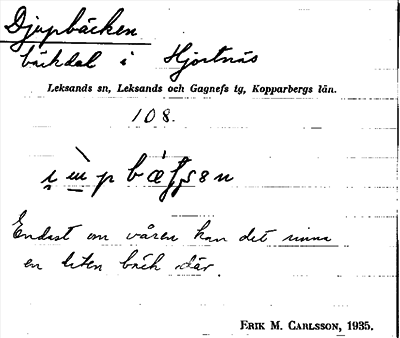 Djupbäcken
bäckdal i Hjortnäs
Leksands sn, Leksands och Gagnefs tg, Kopparbergs län.
108.
Endast om våren kan det rinna
en liten bäck där.
ERIK M. CARLSSON, 1935.